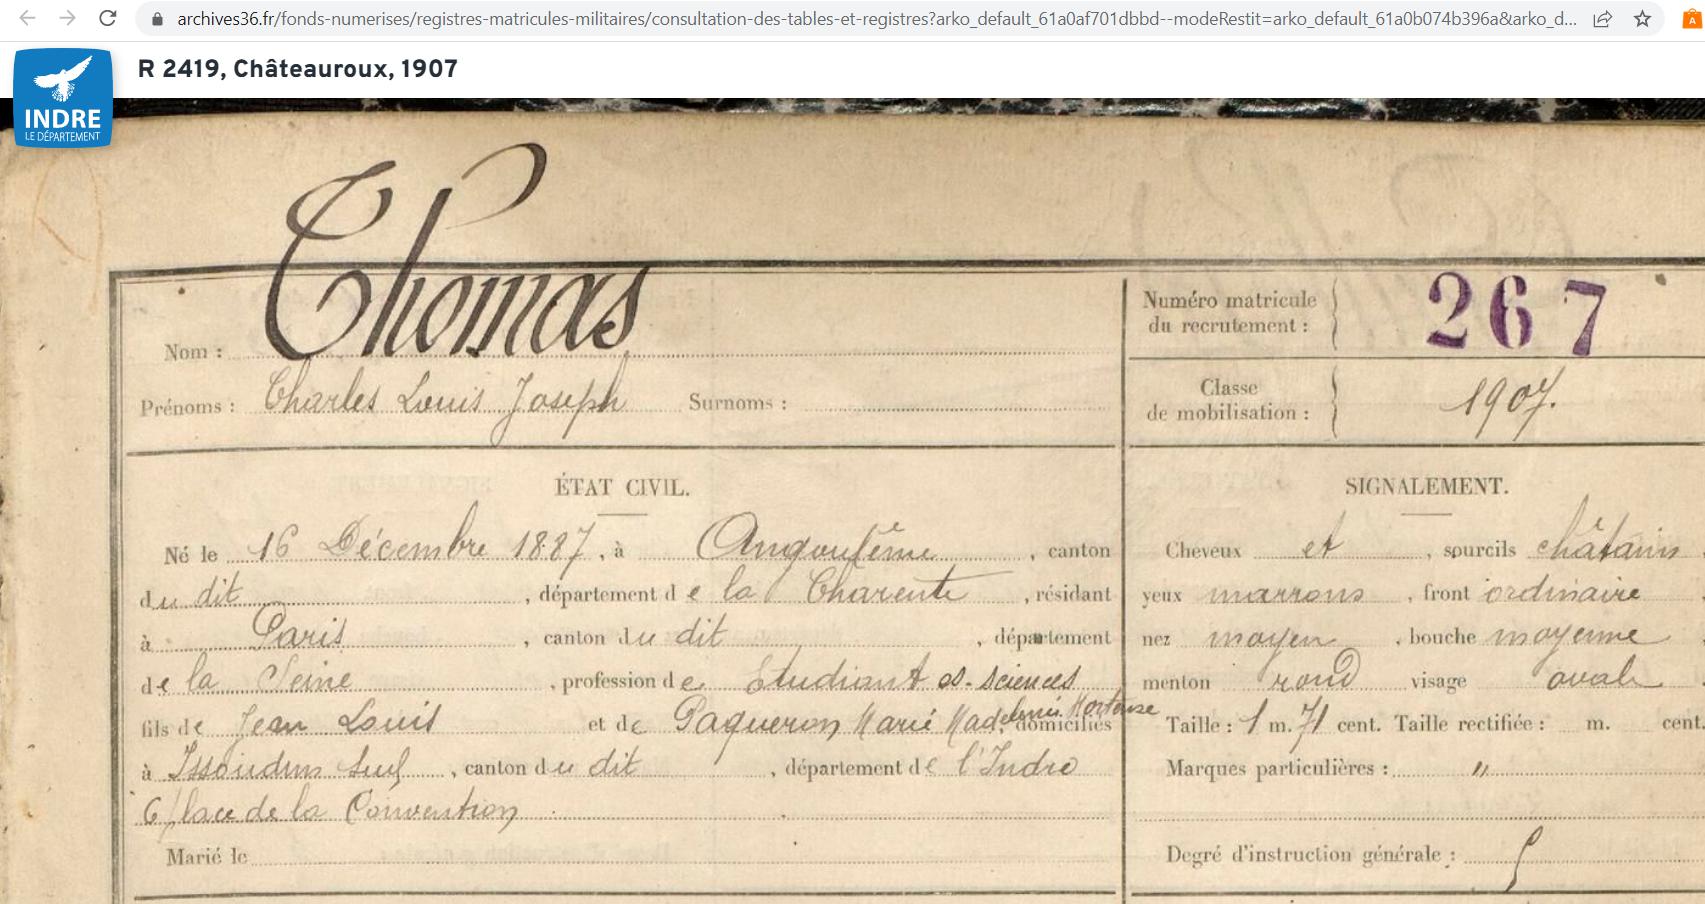 archives36.fr/fonds-numerises/registres-matricules-militaires/consultation-des-tables-et-registres?arko_default_61a0af701dbbd--modeRestit=arko_default_61a0b074b396a&arko_d...
INDRE
LE DÉPARTEMENT
R 2419, Châteauroux, 1907
Nom : Thomas
Prénoms : Charles Louis Joseph Surnoms :
Numéro matricule
du recrutement : 267
Classe
de mobilisation : 1907.
ÉTAT CIVIL.
Né le 16 Décembre 1887, à Angoulême, canton
du dit, département de la Charente, résidant
à Paris, canton du dit, département
de la Seine, profession de Etudiant es-sciences
fils de Jean Louis et de Paqueron Marie Madeleine Hortense, domiciliés
à Issoudun Sud, canton du dit, département de l'Indre
6 place de la Convention
Marié le
SIGNALEMENT.
Cheveux et, sourcils châtains
yeux marrons, front ordinaire
nez moyen, bouche moyenne
menton rond visage ovale
Taille : 1 m. 71 cent. Taille rectifiée : m. cent.
Marques particulières : "
Degré d'instruction générale :